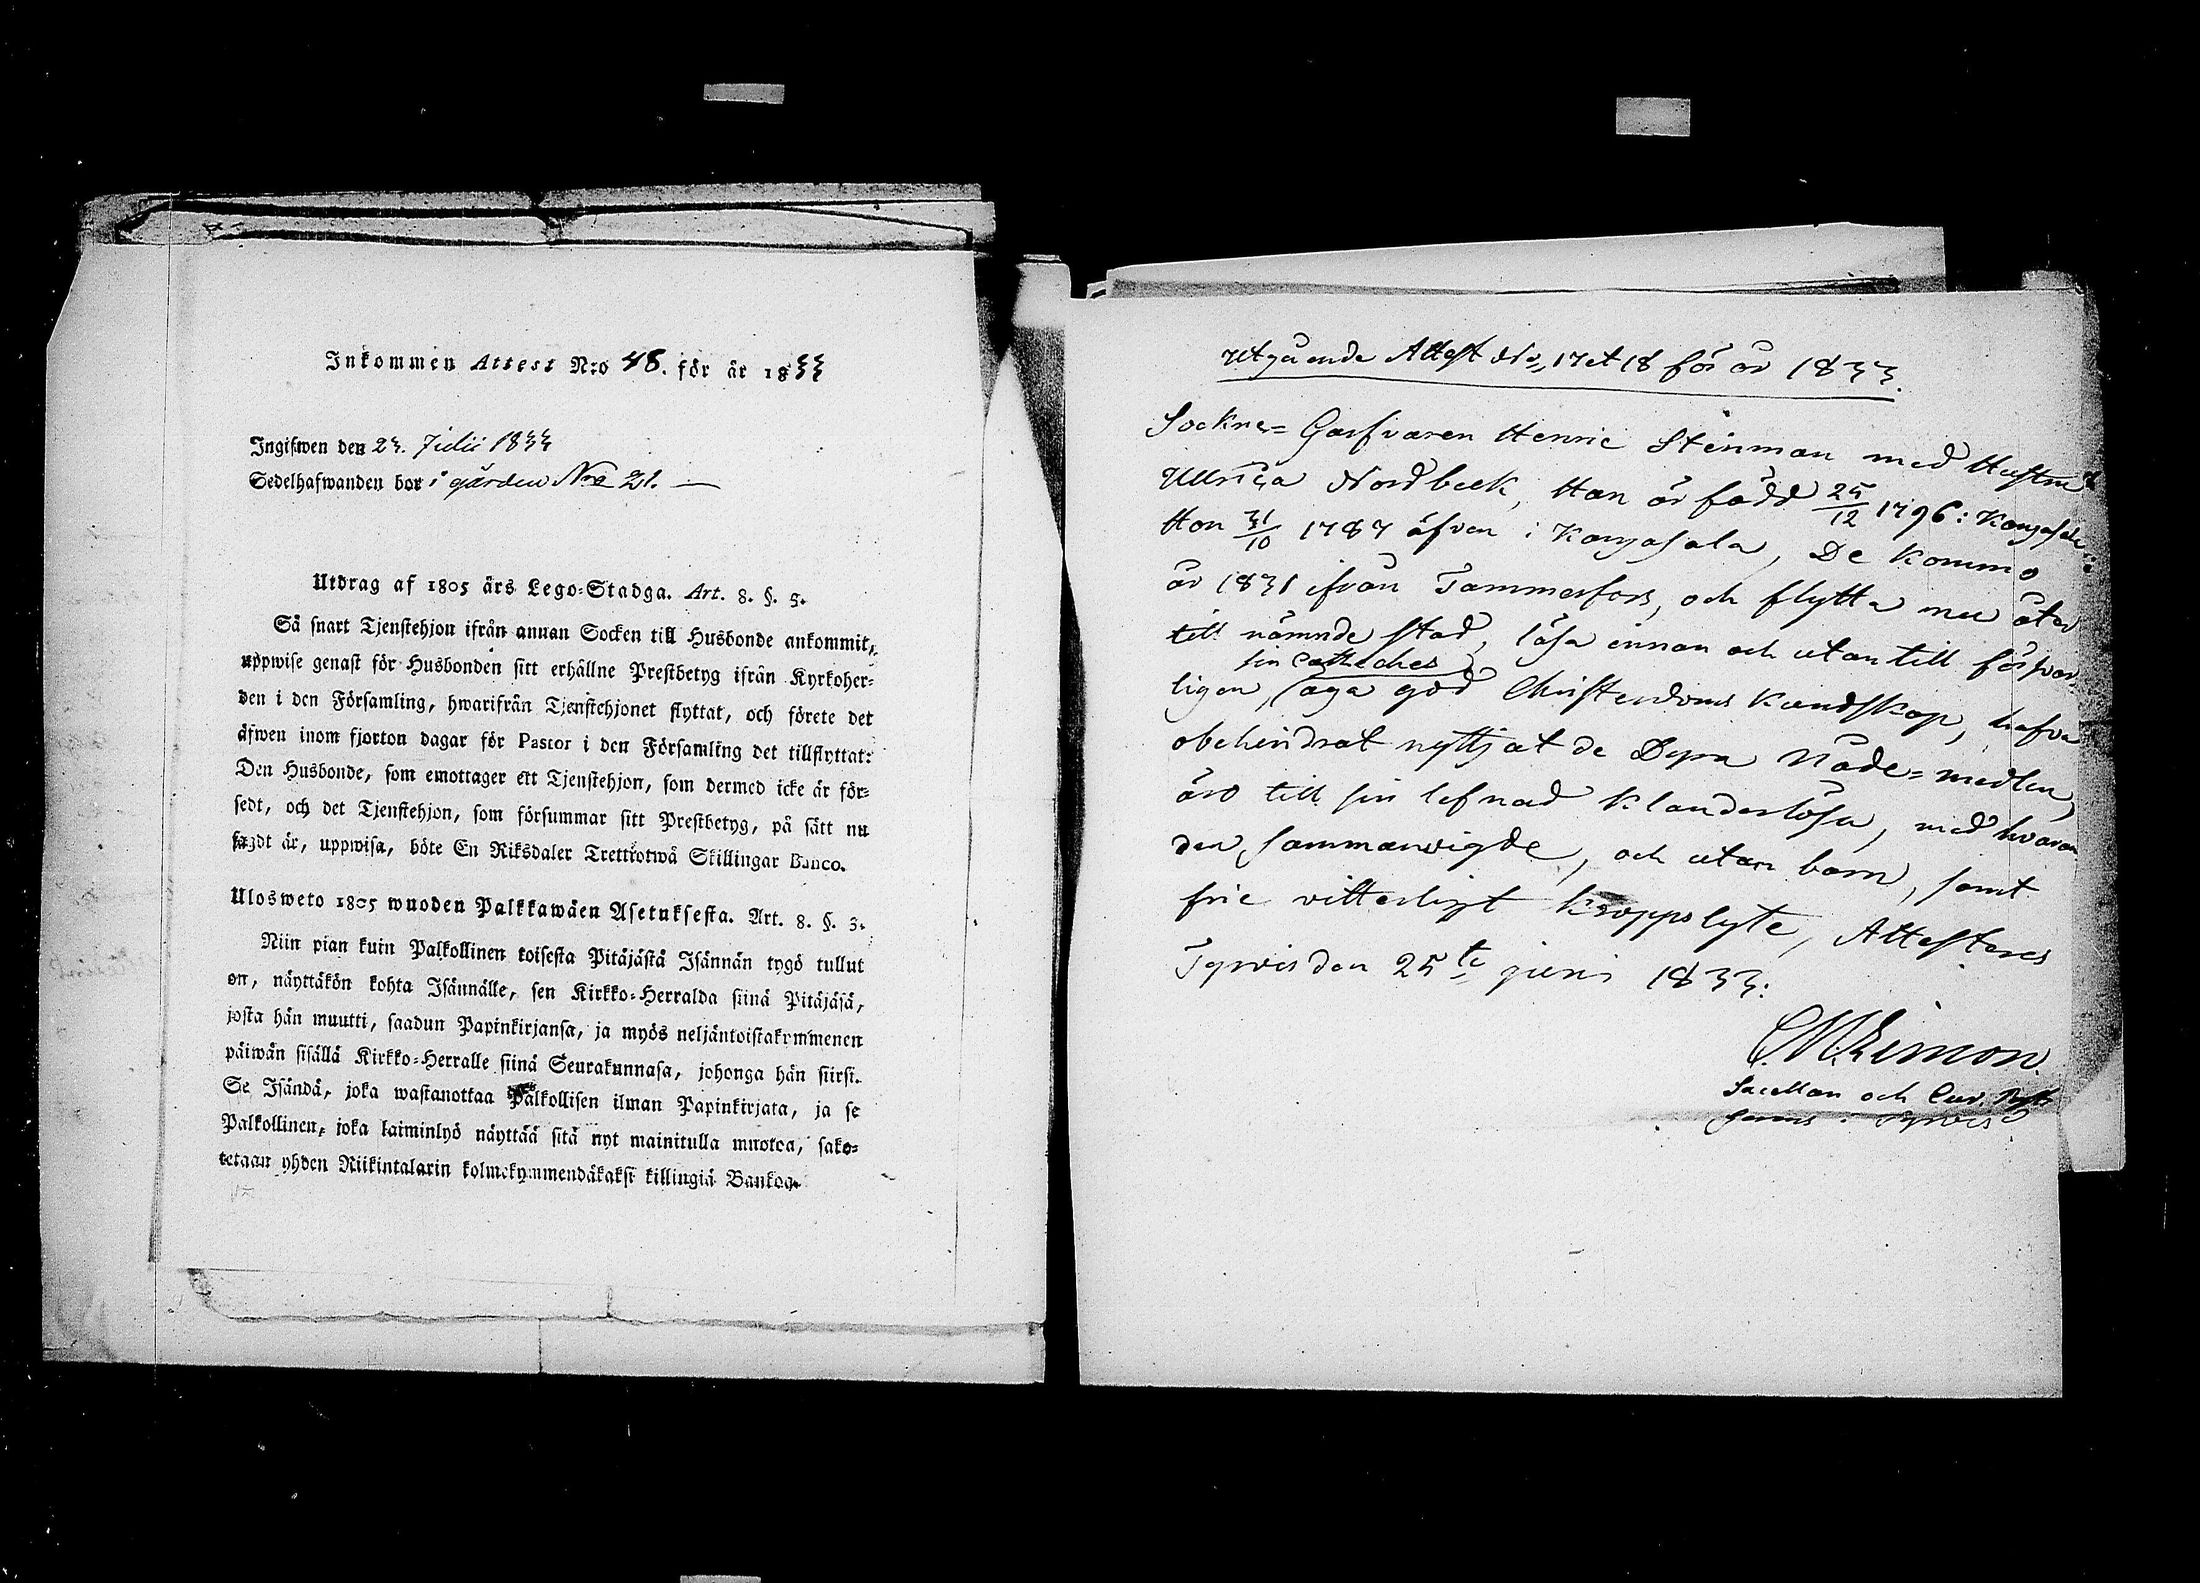 Inkommen Attest N:o 48. för år 1833
Ingifwen den 23. Julii 1833
Sedelhafwanden bor i gården Nro 21.
Utdrag af 1805 års Lego-Stadga. Art. 8. §. 5.
Så snart Tjenstehjon ifrån annan Socken till Husbonde ankommit,
uppwise genast för Husbonden sitt erhållne Prestbetyg ifrån Kyrkoher-
den i den Församling, hwarifrån Tjenstehjonet flyttat, och förete det
äfwen inom fjorton dagar för Pastor i den Församling det tillflyttat:
Den Husbonde, som emottager ett Tjenstehjon, som dermed icke är för-
sedt, och det Tjenstehjon, som försummar sitt Prestbetyg, på sätt nu
sagdt är, uppwisa, böte En Riksdaler Trettiotwå Skillingar Banco.
Ulosweto 1805 wuoden Palkkawäen Asetuksesta. Art. 8. §. 5.
Niin pian kuin Palkollinen toisesta Pitäjästä Isännän tygö tullut
on, näyttäkön kohta Isännälle, sen Kirkko-Herralda siinä Pitäjäsä,
josta hän muutti, saadun Papinkirjansa, ja myös neljäntoistakymmenen
päiwän sisällä Kirkko-Herralle siinä Seurakunnasa, johonga hän siirsi.
Se Isändä, joka wastanottaa Palkollisen ilman Papinkirjata, ja se
Palkollinen, joka laiminlyö näyttää sitä nyt mainitulla muotoa, sako-
tetaan yhden Riikintalarin kolmekymmendäkaksi killingiä Bankog.
Utgående Attest No, 17 et 18 för år 1833.
Sockne- Garfvaren Henric Stenman med Hustru
Ullrica Nordbeck, Han är född 25/12 1796 i Kangasala:
Hon 31/10 1787 äfven i Kangasala, De kommo
år 1831 ifrån Tammerfors, och flytta nu åter
till nämnde stad, läsa innan och utantill försvar-
sin Catheches
ligen, äga god Christendoms Kundskap, hafva
obehindrat nyttjat de Dyra Nåde-medlen,
äro till sin lefnad klanderlösa, med hvaran-
dra sammanvigde, och utan barn, samt
frie vitterligt kroppslyte, Attesteras
Tyrvis den 25te juni 1833:
C M Limon.
Sacellan och Cur. Past:
i Tyrvis